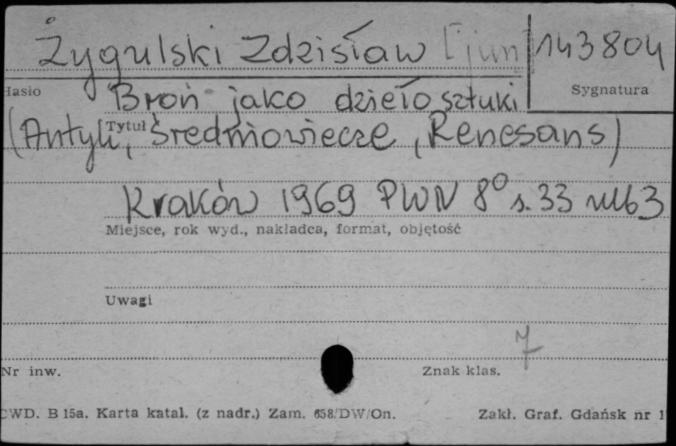 Żygulski Zdzisław [jun] 143804
Hasło Sygnatura
Broń jako dzieło sztuki
Tytuł
(Antyk, Średniowiecze, Renesans)
Kraków 1969 PWN 8° s. 33 nlb 3
Miejsce, rok wyd., nakładca, format, objętość
Uwagi
7
Nr inw. Znak klas.
CWD. B 15a. Karta katal. (z nadr.) Zam. 658/DW/On. Zakł. Graf. Gdańsk nr 1